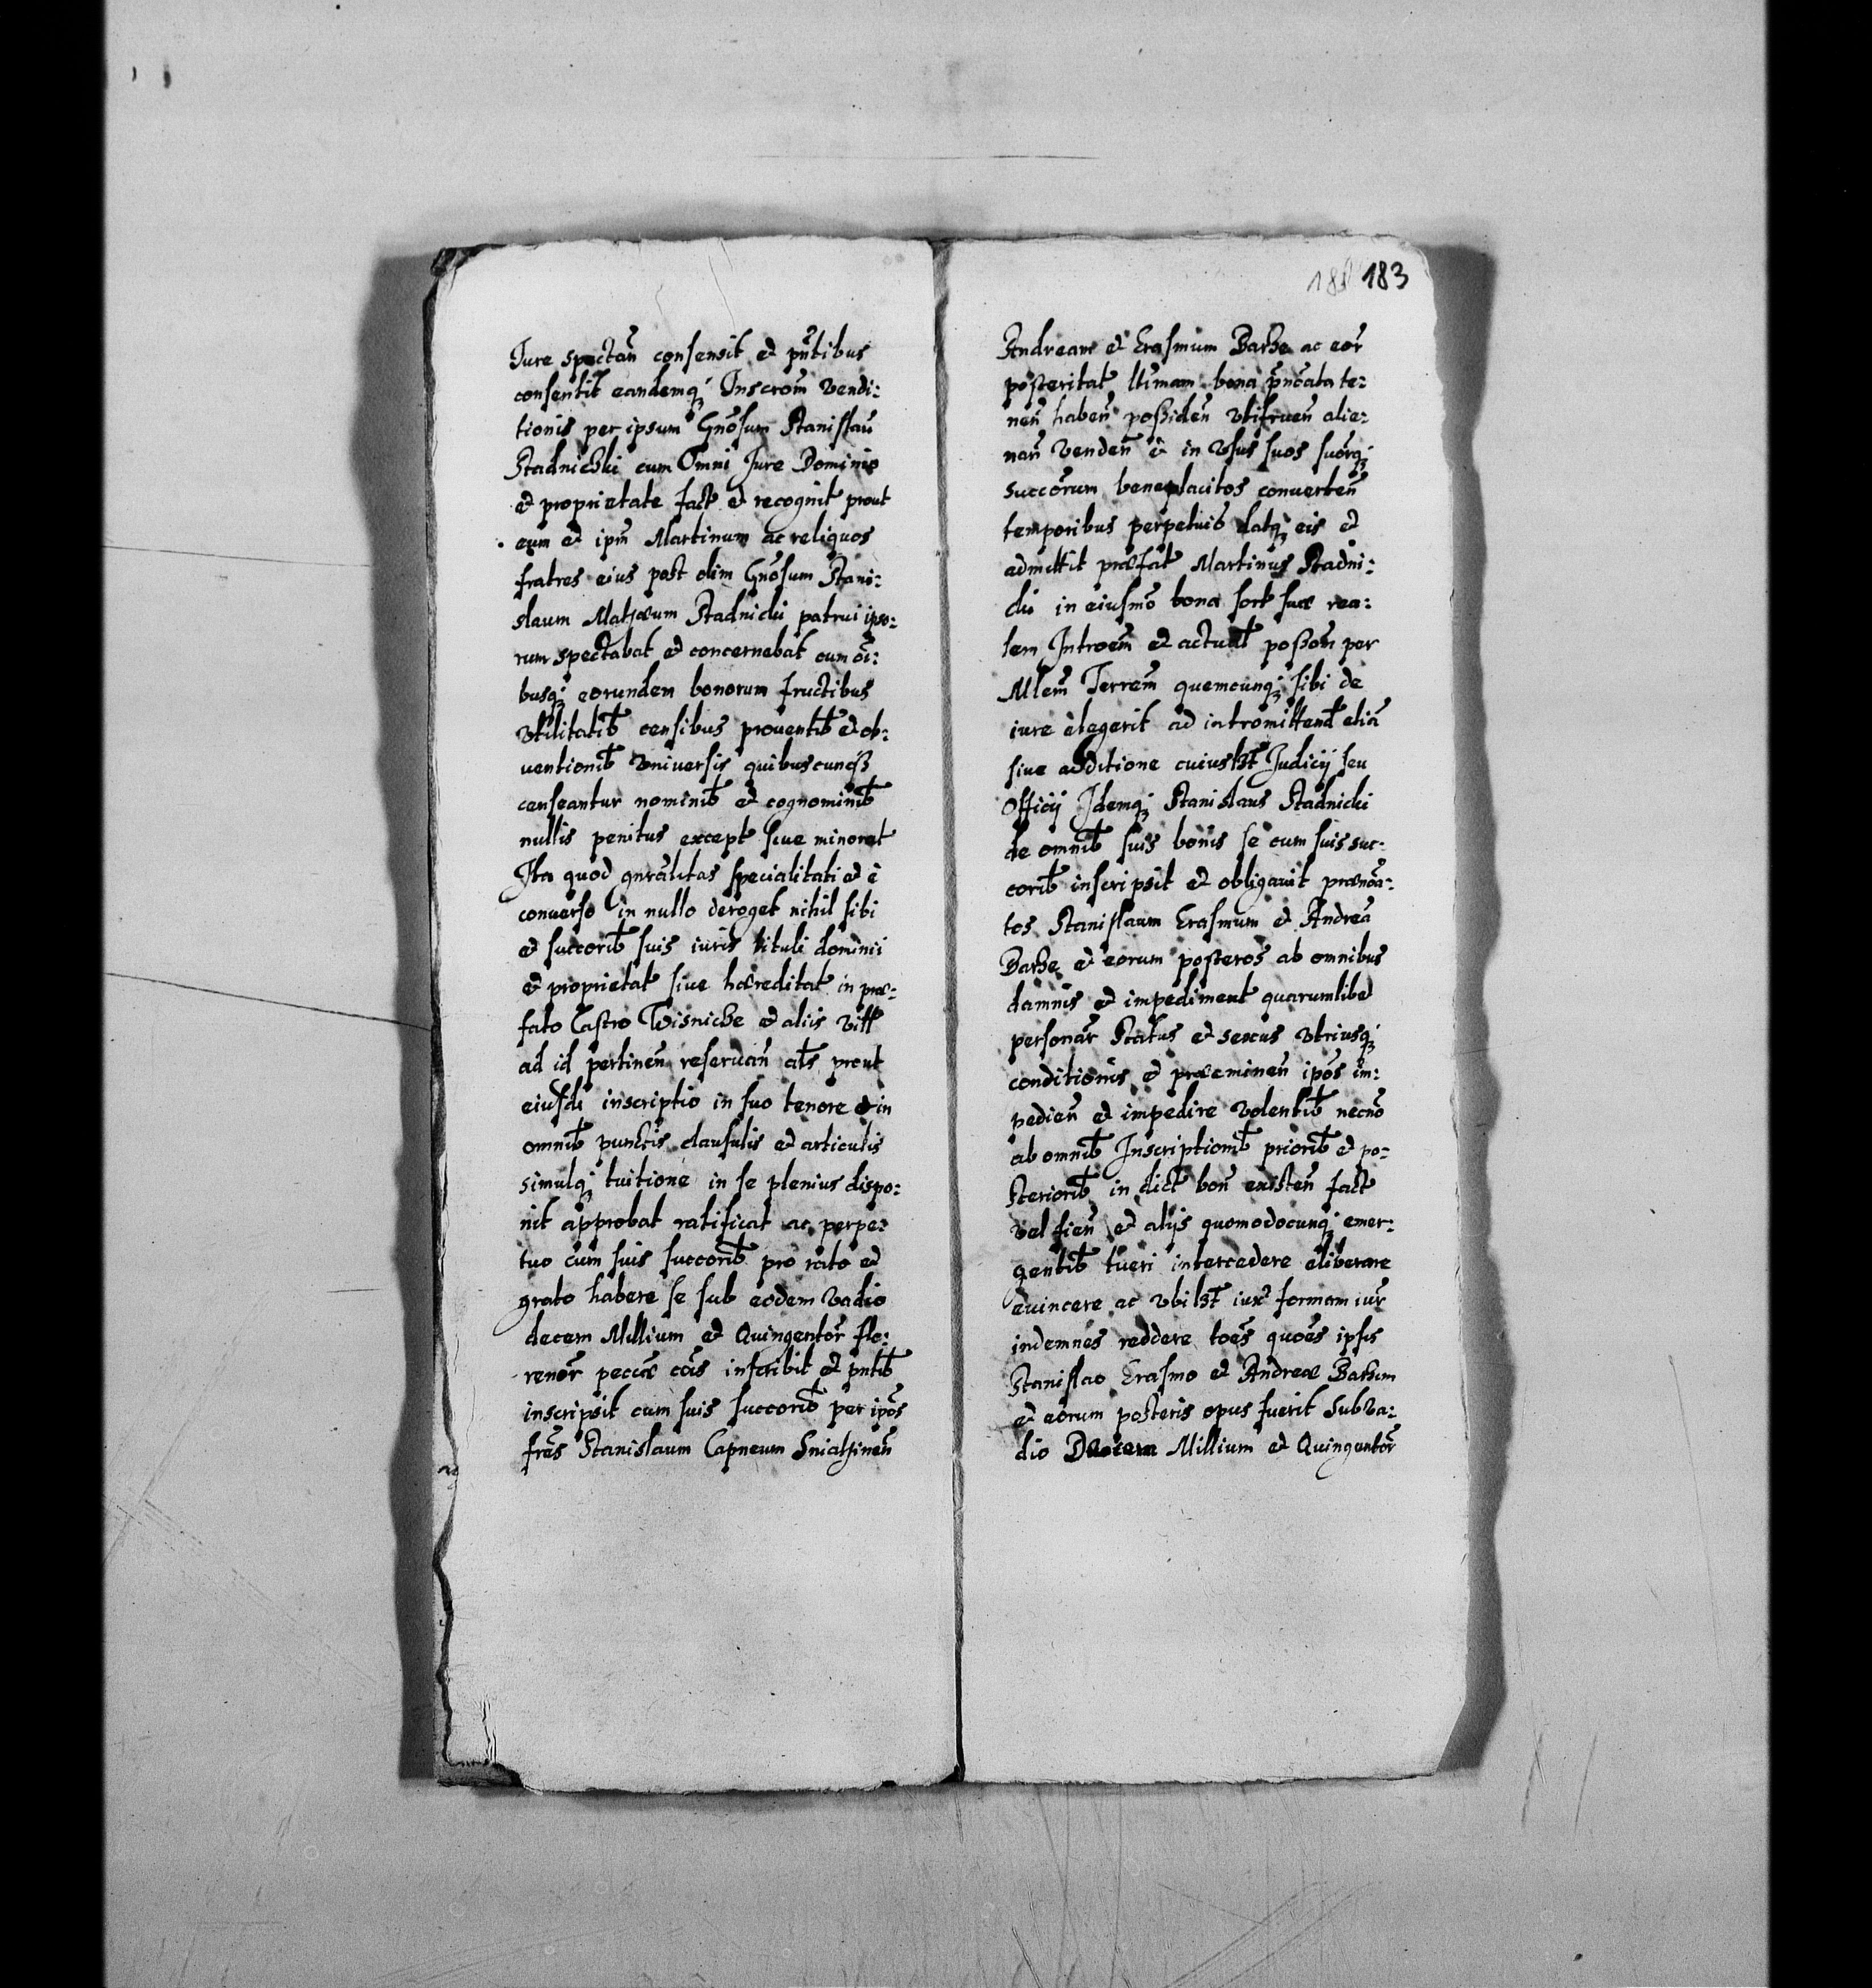 Jure spectañ consensit et pñtibus
consentit eandemq3 Inscrom̃ vendi:
tionis per ipsum Gnõsum Stanislaũ
Stadniczki cum Omni Jure Dominio
et proprietate fact et recognit prout
eum et ipm̃ Martinum ac reliquos
fratres eius post olim Gnõsum Stani:
slaum Mathæum Stadnicki patrui ipso:
rum spectabat et concernebat cum oĩ:
busq3 eorunden bonorum fructibus
vtilitatib̃ censibus prouentib̃ et ob:
uentionib̃ vniuersis quibuscunq3
censeantur nominib̃ et cognominib̃
nullis penitus except siue minorat
Ita quod gnrãlitas specialitati et è
conuerso in nullo deroget nihil sibi
et succorib̃ suis iuris tituli dominii
et proprietat siue hæreditat in præ:
fato Castro Wisnicze et aliis vill
ad id pertineñ reseruañ at̃s prout
eiusdi inscriptio in suo tenore et in
omnib̃ punctis clausulis et articulis
simulq3 tuitione in se plenius dispo:
nit approbat ratificat ac perpe:
tuo cum suis succorib̃ pro rato et
grato habere se sub eodem vadio
decem Millium et Quingentor̃ flo:
renor̃ pecciæ cõis inscribit et pntib̃
inscripsit cum suis succorib̃ per ipõs
frẽs Stanislaum Capneum
183
Andream et Erasmum Barze ac eor̃
posteritat ltĩmam bona p̃ncata te:
neñ habeñ possideñ vtifrueñ alie:
nañ vendeñ et in vsus suos suõrq3
succõrum beneplacitos conuerteñ
temporibus perpetuis datq3 eis et
admittit præfat Martinus Stadni:
cki in eiusmõ bona sort suæ rea:
lem Introem̃ et actual̃ posson̄ per
Mlem̃ Terrem̃ quemcunq3 sibi de
iure elegerit ad intromittend̃ etiã
siue additione cuiusl3t Judicij seu
Officij Idemq3 Stanislaus Stadnicki
de omnib̃ suis bonis se cum suis suc:
corib̃ inscripsit et obligauit prænõa:
tos Stanislaum Erasmum et Andreã
Barze et eorum posteros ab omnibus
damnis et impediment quarumlibet
personar̃ Status et sexus vtriusq3
conditionis et præeminen̄ ipõs im:
pedieñ et impedire volentib̃ necnõ
ab omnib̃ Inscriptionib̃ priorib̃ et po:
steriorib̃ in dict boñ existeñ fact
vel fieñ et alijs quomodocunq3 emer:
gentib̃ tueri intercedere eliberare
euincere ac vbil3t iux̃ formam iur̃
indemnes reddere toẽs quoẽs ipsis
Stanislao Erasmo et Andreæ Barzum
et eorum posteris opus fuerit sub va:
dio Decem Millium et Quingentor̃